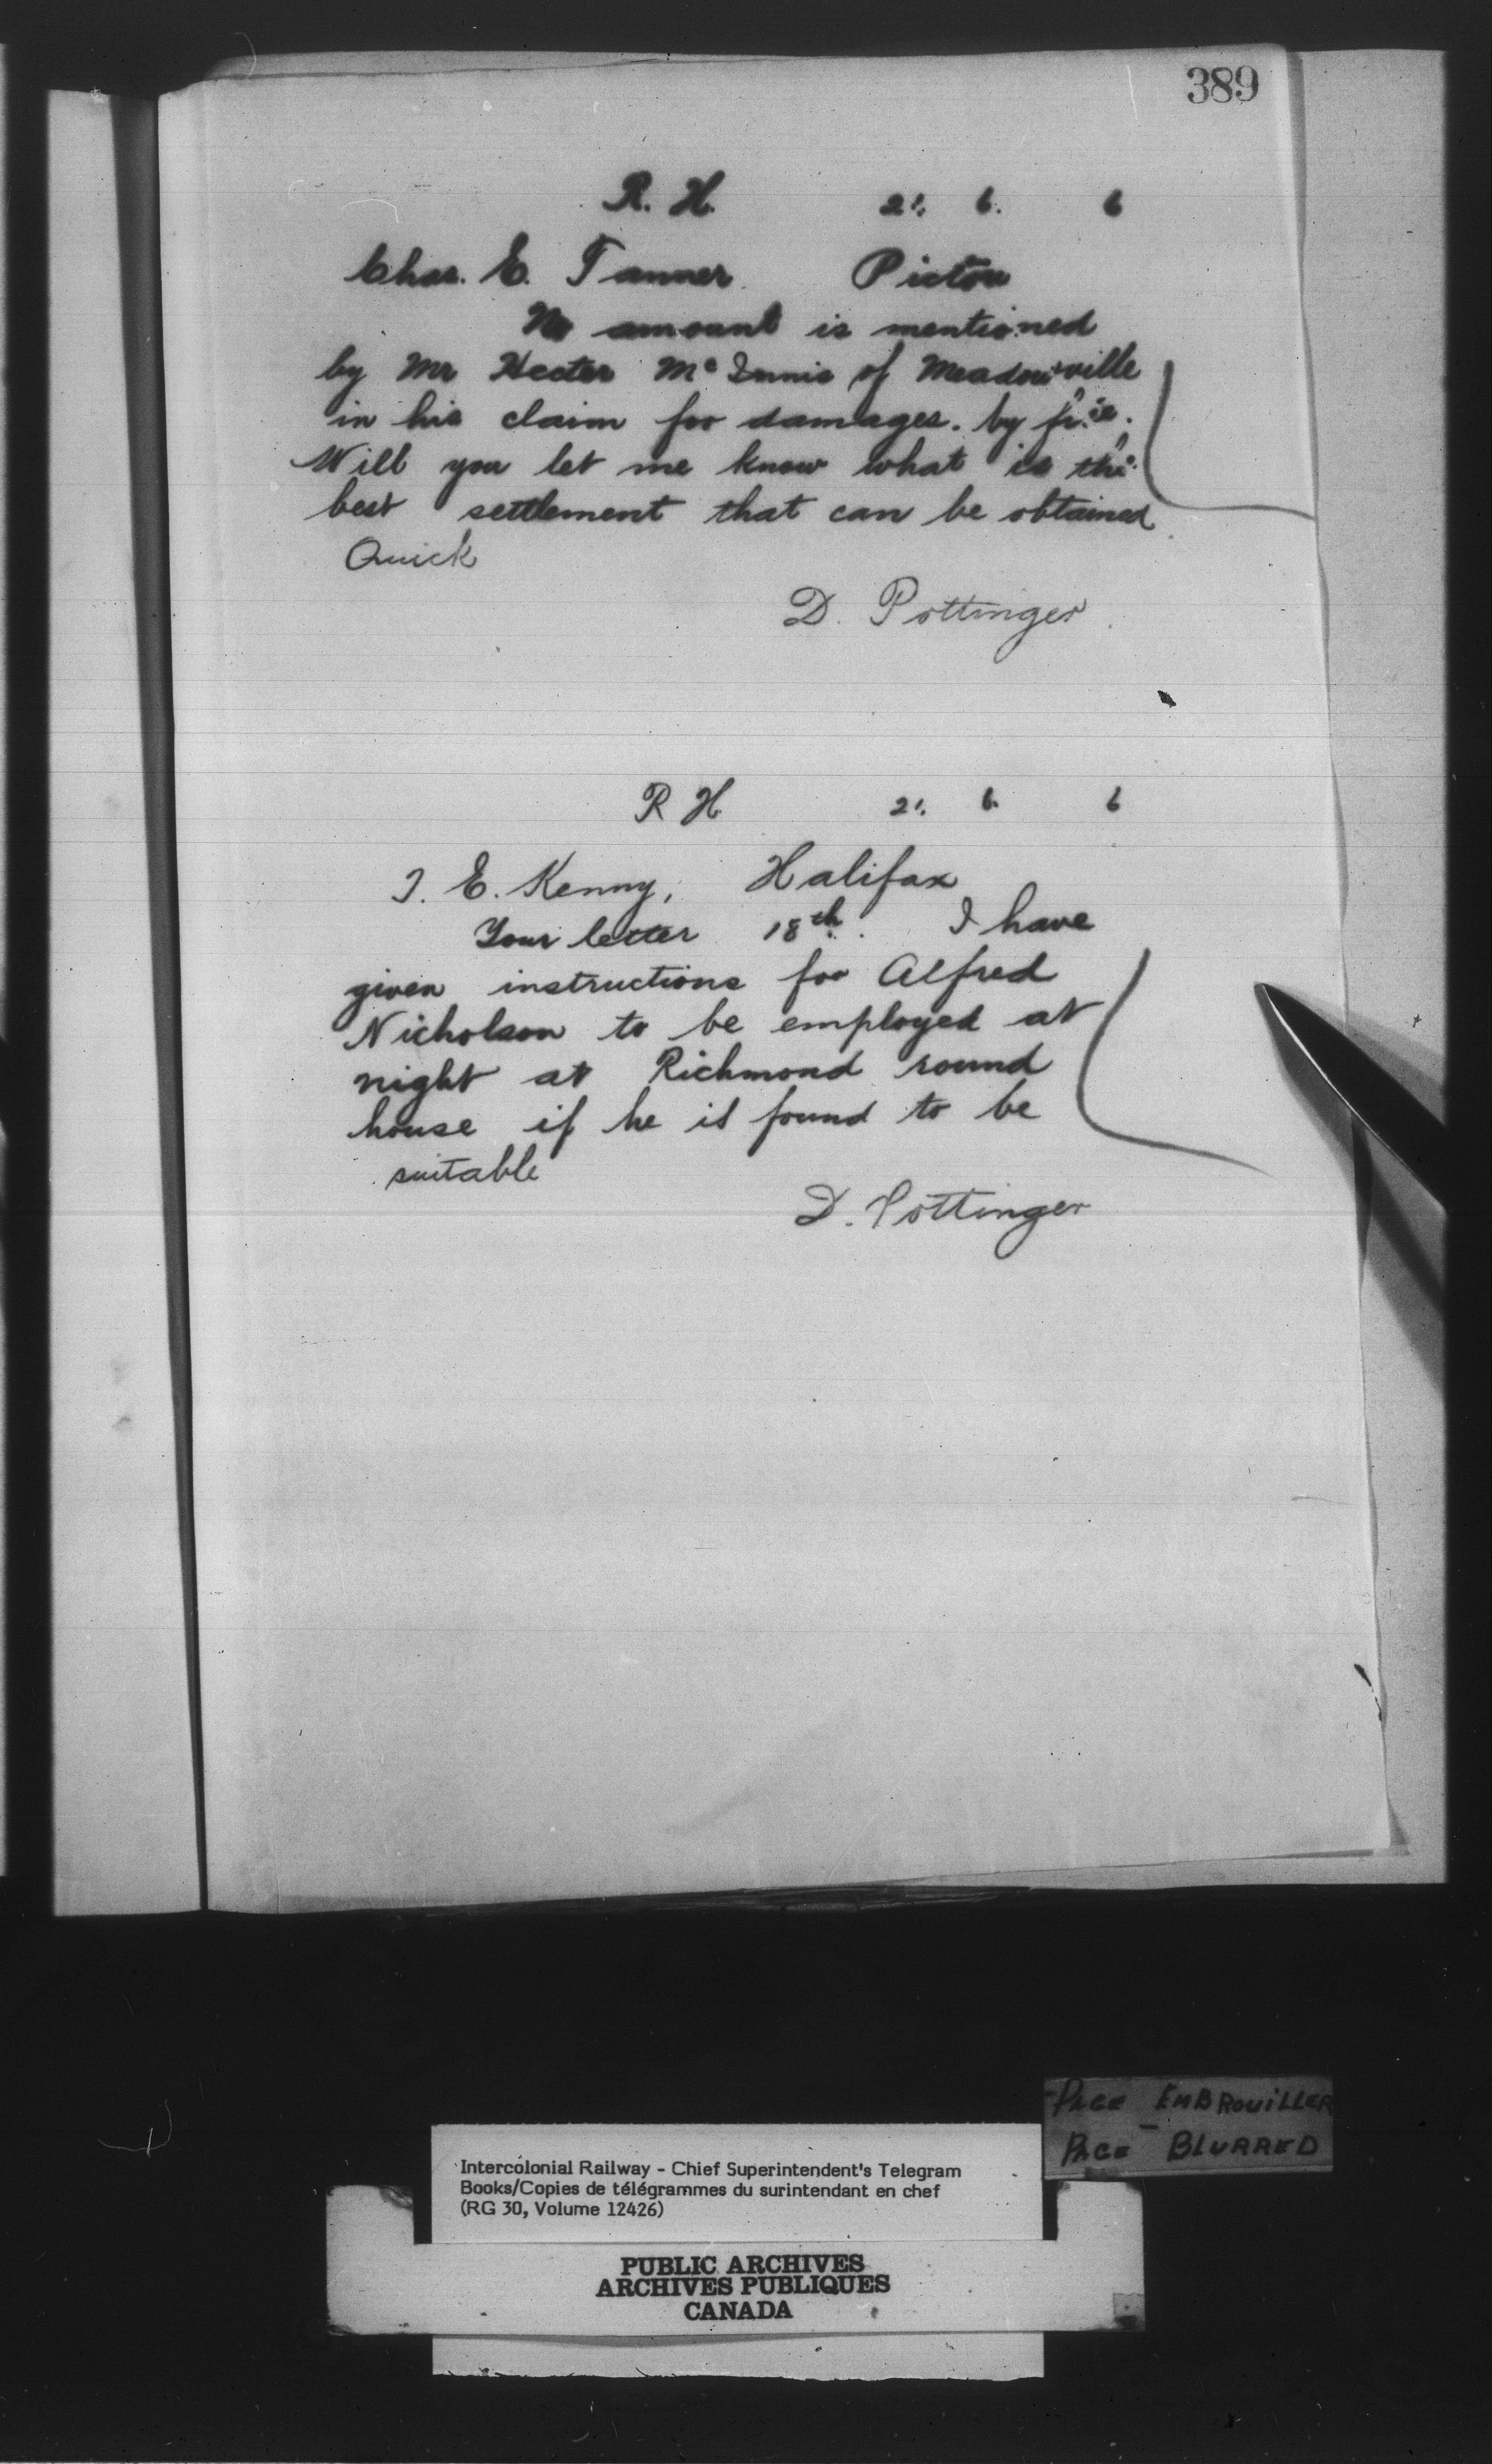 389
R. H. 21. 6. 6
Chas. E. Tanner Pictou
No amount is mentioned
by Mr Hector McInnis of Meadowville
in his claim for damages. by fire.
Will you let me know what is the
best settlement that can be obtained
Quick
D. Pottinger
R H 21. 6. 6
T. E. Kenny, Halifax
Your letter 18th. I have
given instructions for Alfred
Nicholson to be employed at
night at Richmond round
house if he is found to be
suitable
D. Pottinger
PAGE EMBROUiLLER
PAGE - BLURRED
Intercolonial Railway - Chief Superintendent's Telegram
Books/Copies de télégrammes du surintendant en chef
(RG 30, Volume 12426)
PUBLIC ARCHIVES
ARCHIVES PUBLIQUES
CANADA